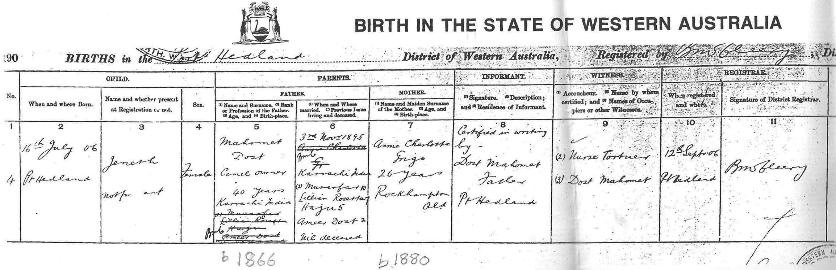 BIRTH IN THE STATE OF WESTERN AUSTRALIA
190 BIRTHS in the Hedland District of Western Australia, Registered by
CHILD.
PARENTS.
INFORMANT.
WITNESS.
REGISTRAR.
No.
When and where Born.
Name and whether present at Registration or not.
Sex.
FATHER.
(1) Name and Surname. (2) Rank or Profession of the Father. (3) Age, and (4) Birth-place.
(1) When and Where married. (2) Previous Issue living and deceased.
MOTHER.
(1) Name and Maiden Surname of the Mother. (2) Age, and (3) Birth-place.
(1) Signature. (2) Description; and (3) Residence of Informant.
(1) Accoucheur. (2) Nurse by whom certified; and (3) Names of Occupiers or other Witnesses.
When registered and where.
Signature of District Registrar.
1 2 3 4 5 6 7 8 9 10 11
4
16th July 06
Pt Hedland
Jeneth
not present
Female
Mahomet
Dost
Camel owner
40 years
Karrachi India
3rd Nov 1895
Karrachi India
Lillian
Ameer Dost 2
Nil deceased
Annie Charlotte
Grigo
26 years
Rockhampton
Qld
Certified in writing
by -
Dost Mahomet
Father
Pt Hedland
(2) Nurse
(3) Dost Mahomet
12th Sept 06
Pt Hedland
b 1866
b 1880